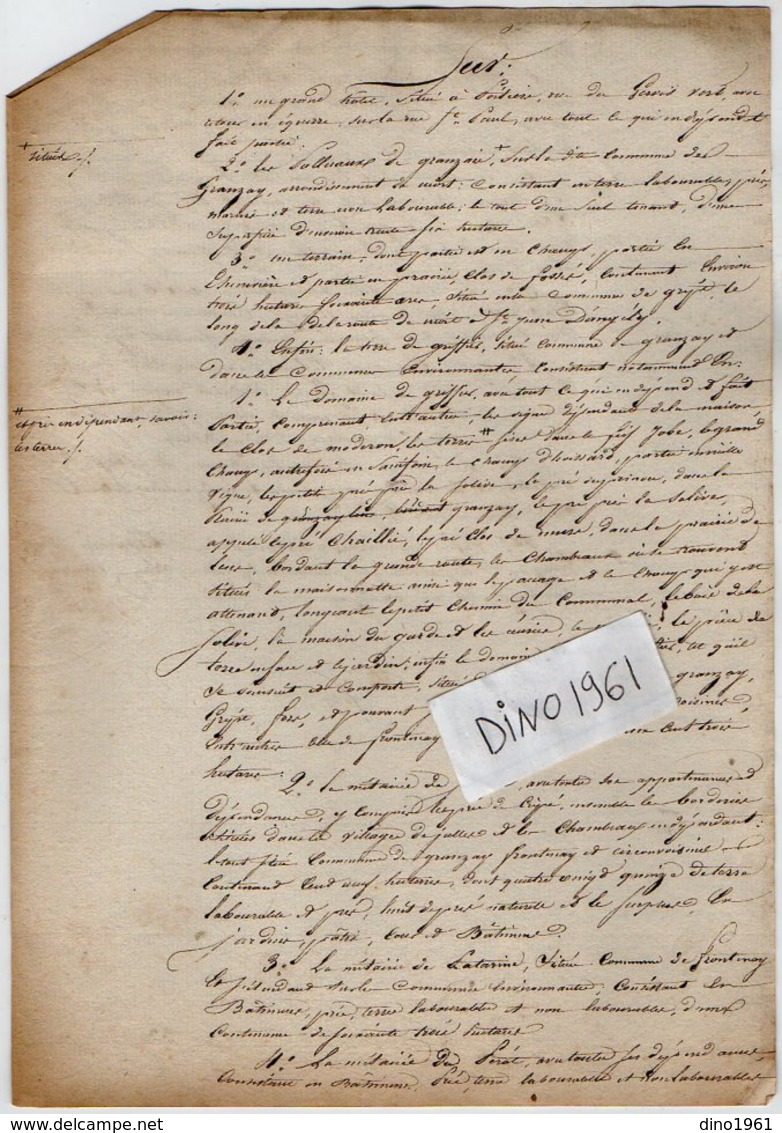 Sur :
1.° un grand hôtel, situé à Poitiers, rue du Gervis vert, avec
retour en équerre, sur la rue St Paul, avec tout ce qui en dépend et
fait partie.
+ situés ./.
2.° les de granzai +, sur la dite commune de
Granzay, arrondissement de niort : Consistant en terre labourables, prés,
marais et terre non labourable ; le tout d'un seul tenant, d'une
superficie d'environ trente six hectares.
3.° un terrain, dont partie est en champ, partie en
Chenevière et partie en prairie, clos de fossés, contenant environ
trois hectares soixante ares, situé même commune de gript, le
long de la de la route de niort à St jean D'angély.
4.° Enfin : la terre de griffier, située commune de granzay et
dans les communes environnantes, consistant notamment en :
1.° Le domaine de griffier, avec tout ce qui en dépend et fait
# et prés en dépendant savoir :
les terres ./.
Partie, comprenant, entr'autres, les vignes dépendant de la maison,
le clos de moderon, les terres # sises dans le fief Jobe, le grand
Champ, autrefois en Sainfoin, le champ d'huissard, partie en vieille
vigne, les petits prés près la solève, le pré du prinou, dans la
de granzay, le pré près la Solève,
appelé le pré Chaillié, le pré Clos de murs, dans la prairie de
bordant la grande route, les Chambeaux où se trouvent
situés la maisonnette ainsi que le pacage et le champ qui y est
attenant, longeant le petit Chemin du Communal, le bois de la
Solève, la maison du garde et les écuries, la pièce de
terre en face et le jardin ; enfin le domaine tel qu'il
se poursuit et comporte, situé granzay,
Gript, fors, et pouvant voisines,
entr'autres celle de frontenay cent trois
hectares.
2.° la métairie de avec toutes ses appartenances et
dépendances, y compris les prés de Cigné, ensemble les borderies
situées dans le village de jullès et les Chambeaux en dépendant :
le tout situé Commune de granzay frontenay et circonvoisines
Contenant Cent neuf hectares, dont quatre vingt quinze de terre
labourable et prés, huit de prés naturels et le surplus, en
jardins, pâtis, cours et Bâtiments.
3.° La métairie de Latarine, située commune de frontenay
et s'étendant sur les communes environnantes, Consistant en
Bâtiments, prés, terres labourables et non labourables, d'une
Contenance de soixante treize hectares
4.° La métairie du Pérot, avec toutes ses dépendances,
Consistant en Bâtiments, Prés, terre labourables et non labourables
DINO1961
dino1961